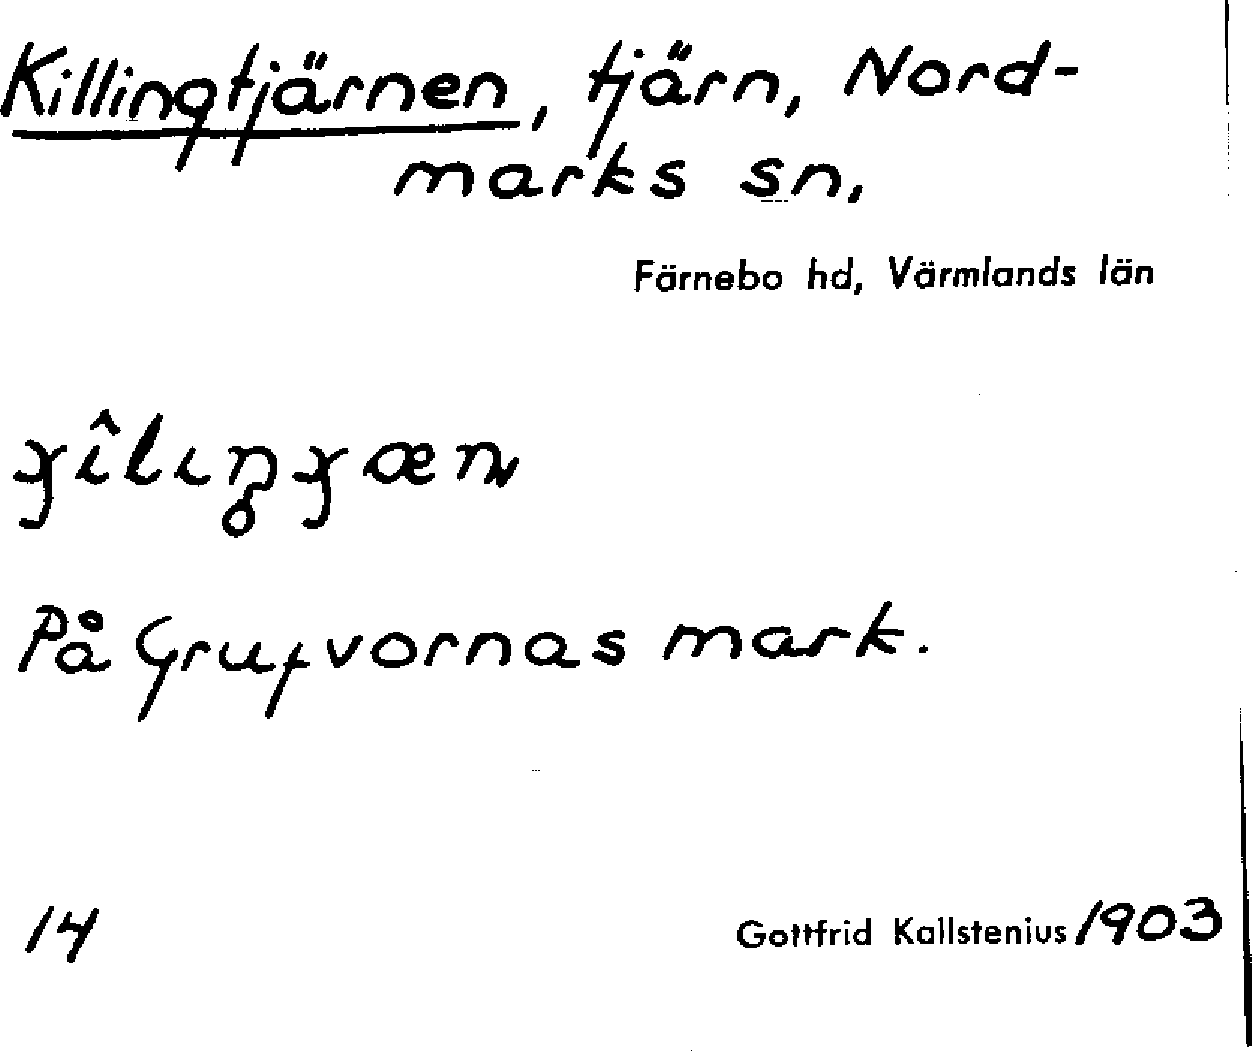 Killingtjärnen, tjärn, Nord-
marks sn,
Färnebo hd, Värmlands län
På Grufvornas mark.
14
Gottfrid Kallstenius 1903